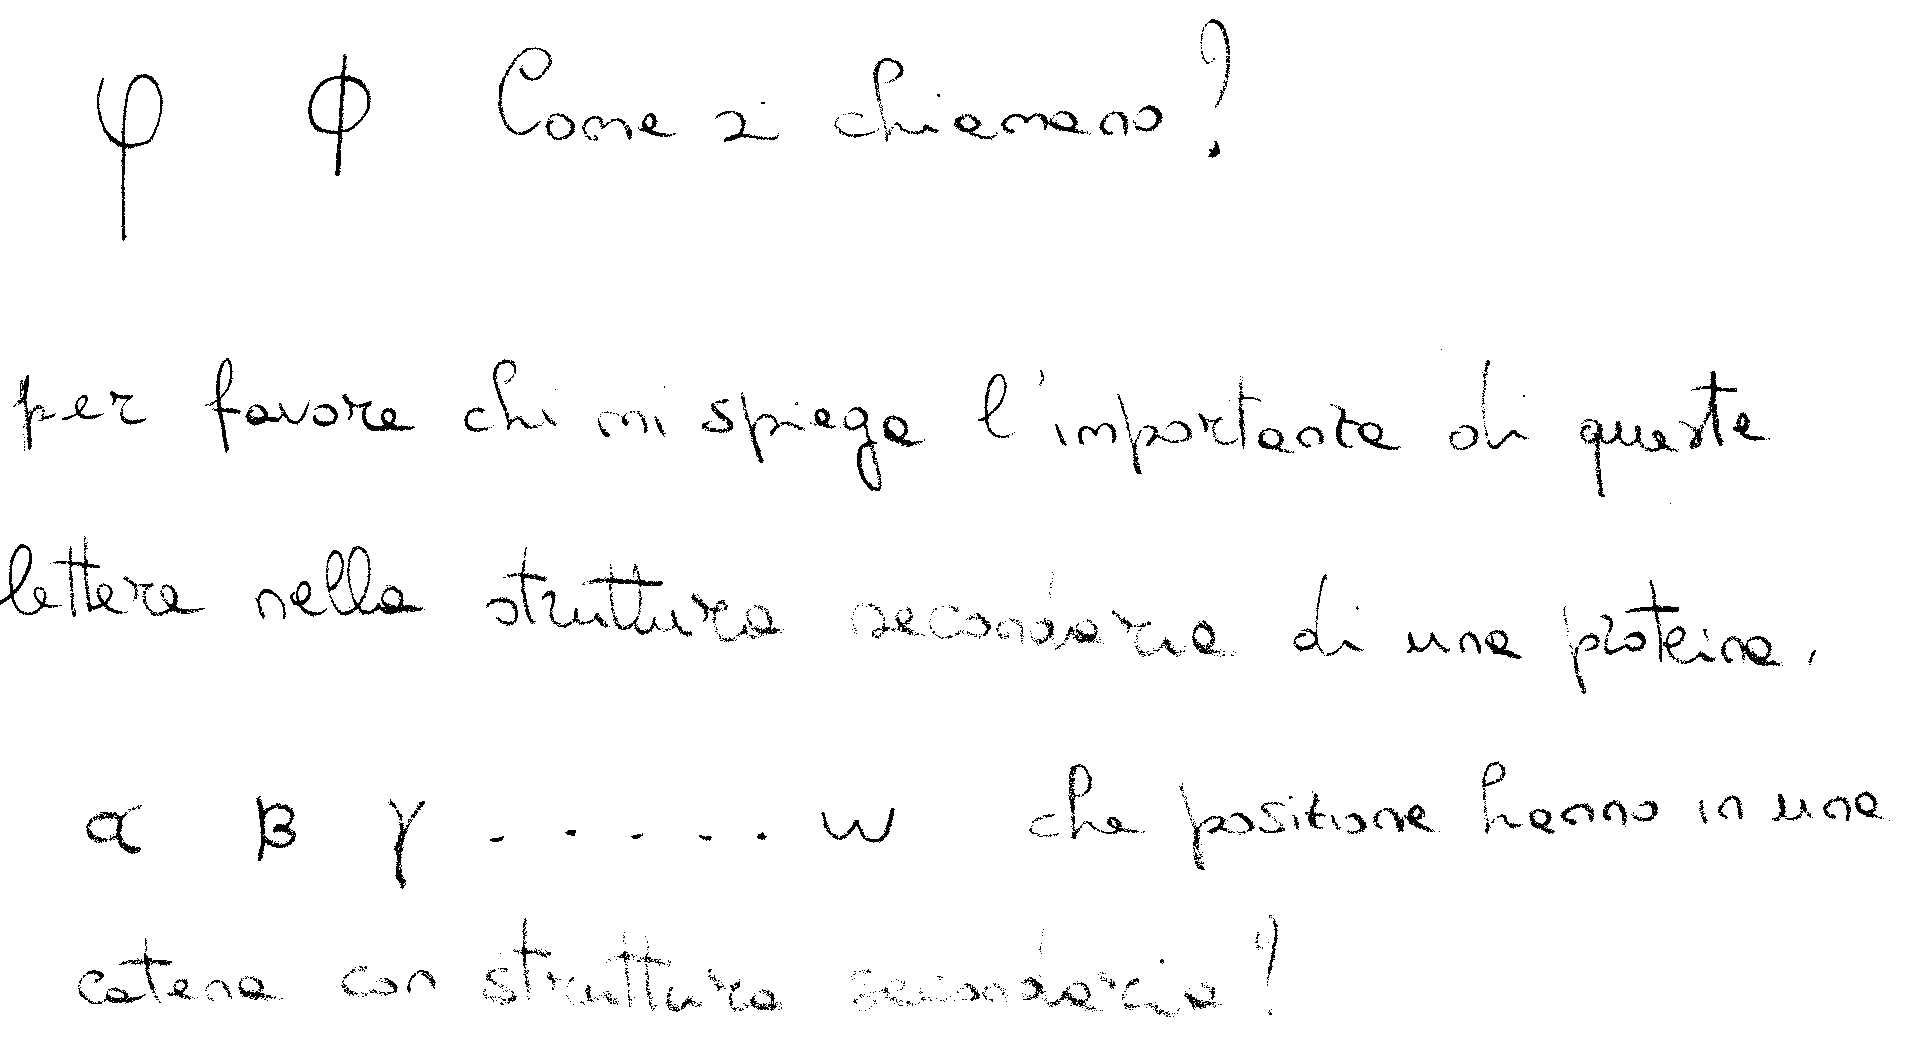 φ ϕ Come si chiamano?
per favore chi mi spiega l'importanza di queste
lettere nella struttura secondaria di una proteina.
α β γ . . . . . w che posizione hanno in una
catena con struttura secondaria?